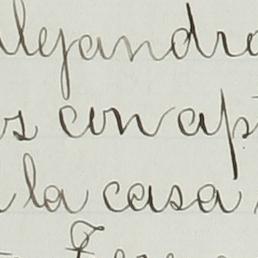 alejandro
s con ap
la casa